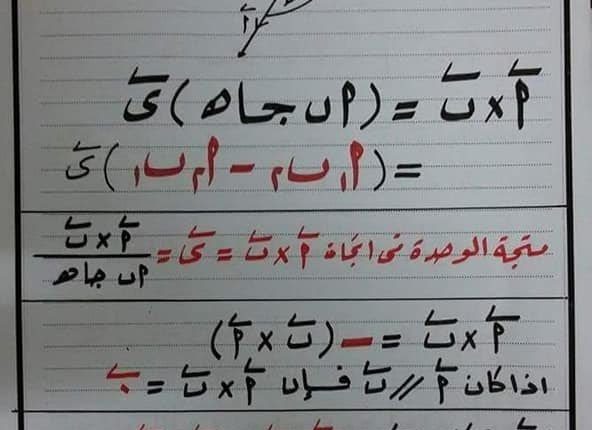 أ × ب = (أ ب جا هـ) ى
= (أ₁ ب₂ − أ₂ ب₁) ى
متجة الوحدة فى اتجاة أ × ب = ى = أ × ب / أ ب جا هـ
أ × ب = − (ب × أ)
اذا كان أ // ب فإن أ × ب =